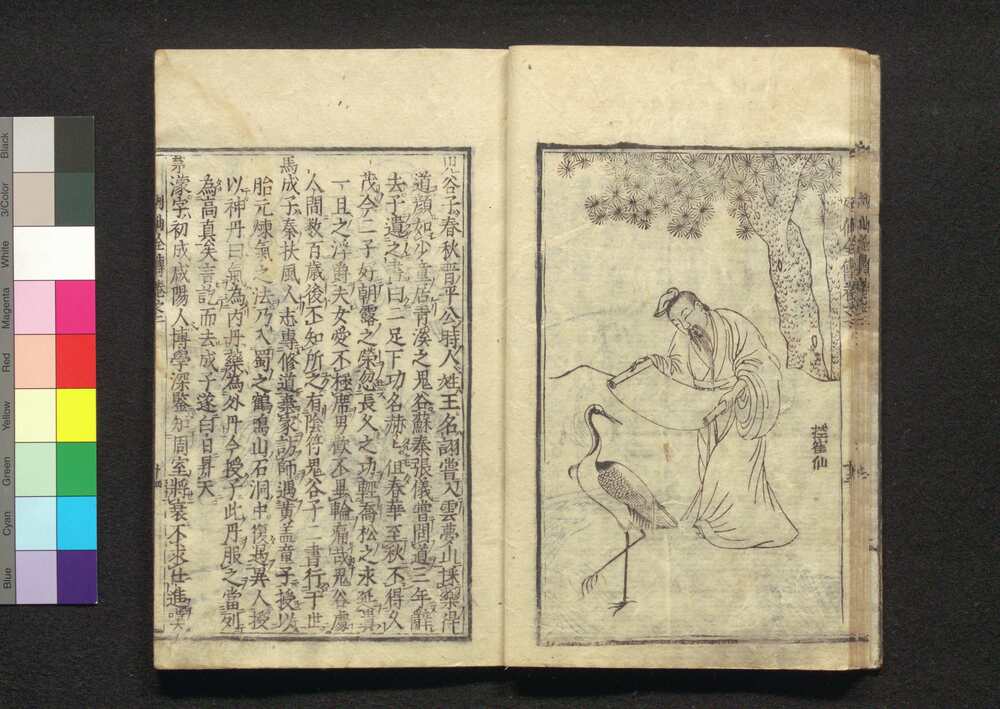 控雀仙
鬼谷子春秋晉平公時人姓王名詡嘗入雲夢山採藥得
道顏如少童居青溪之鬼谷蘇秦張儀嘗問道三年辭
去子遺之書曰二足下功名赫〻但春華至秋不得久
茂今二子好朝露之榮忽長久之功輕喬松之永延貴
一旦之浮爵夫女愛不極席男歡不畢輪痛哉鬼谷處
人間數百歲後不知所之有陰符鬼谷子二書行于世
馬成子秦扶風人志專修道棄家訪師遇黃蓋童子授以
胎元煉氣之法乃入蜀之鶴鳴山石洞中復遇異人授
以神丹曰氣為內丹藥為外丹今授子此丹服之當列
為高真矣言訖而去成子遂白日昇天
茅濛字初成咸陽人博學深鑒知周室將衰不求仕進
Black
3/Color
White
Magenta
Red
Yellow
Green
Cyan
Blue